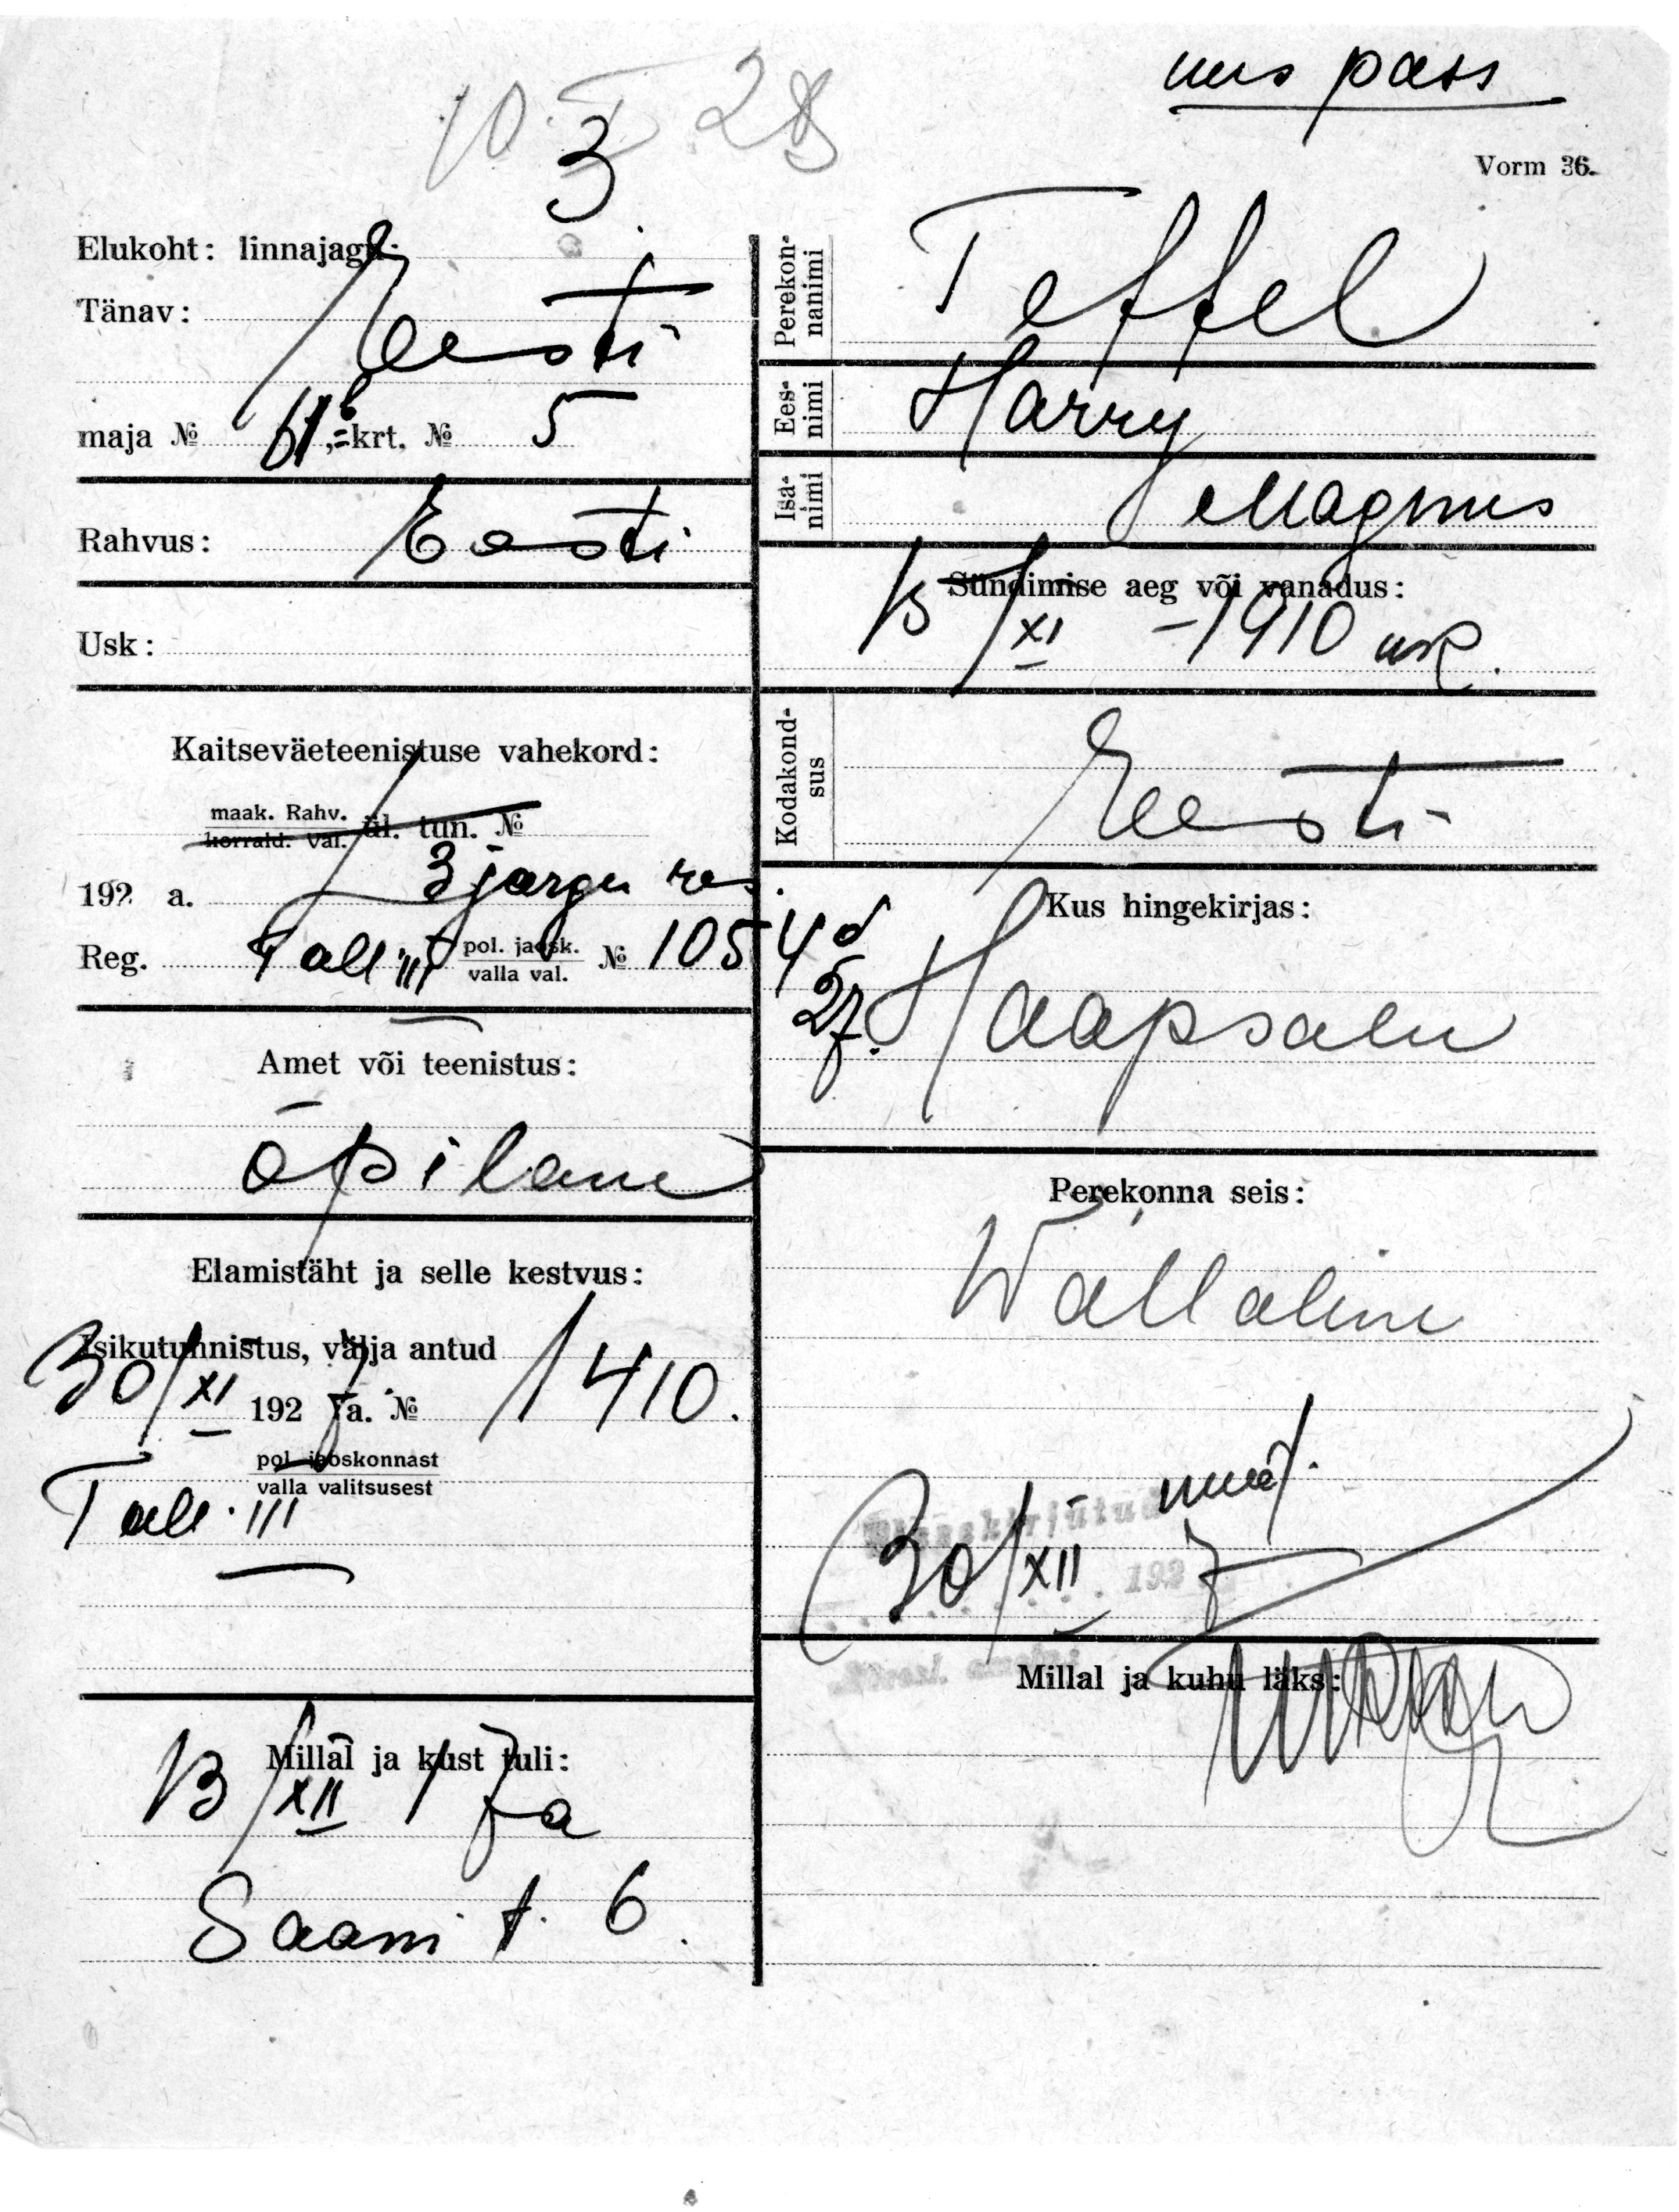 uus pass
10. I 28
3
Vorm 36.
Elukoht: linnajagu:
Tänav: Eesti
maja № 61, krt. № 5
Rahvus: Eesti
Usk:
Kaitseväeteenistuse vahekord:
maak. Rahv.
korrald. Val. ül. tun. №
192 a. 3 järgu res.
Reg. Tall. III pol. jaosk. № 1054
valla val.
27.
Amet või teenistus:
õpilane
Elamistäht ja selle kestvus:
Isikutunnistus, välja antud
30/XI 1927 a. № 1410.
pol. jaoskonnast
valla valitsusest
Tall. III
Millal ja kust tuli:
13/XII 27 a
Saani t. 6.
Perekonnanimi Teffel
Eesnimi Harry
Isanimi Magnus
Sündimise aeg või vanadus:
/XI - 1910 usk.
Kodakondsus Eesti
Kus hingekirjas:
Haapsalu
Perekonna seis:
Wallaline
muut.
Sissekirjutud
30/XII 1927
Millal ja kuhu läks: